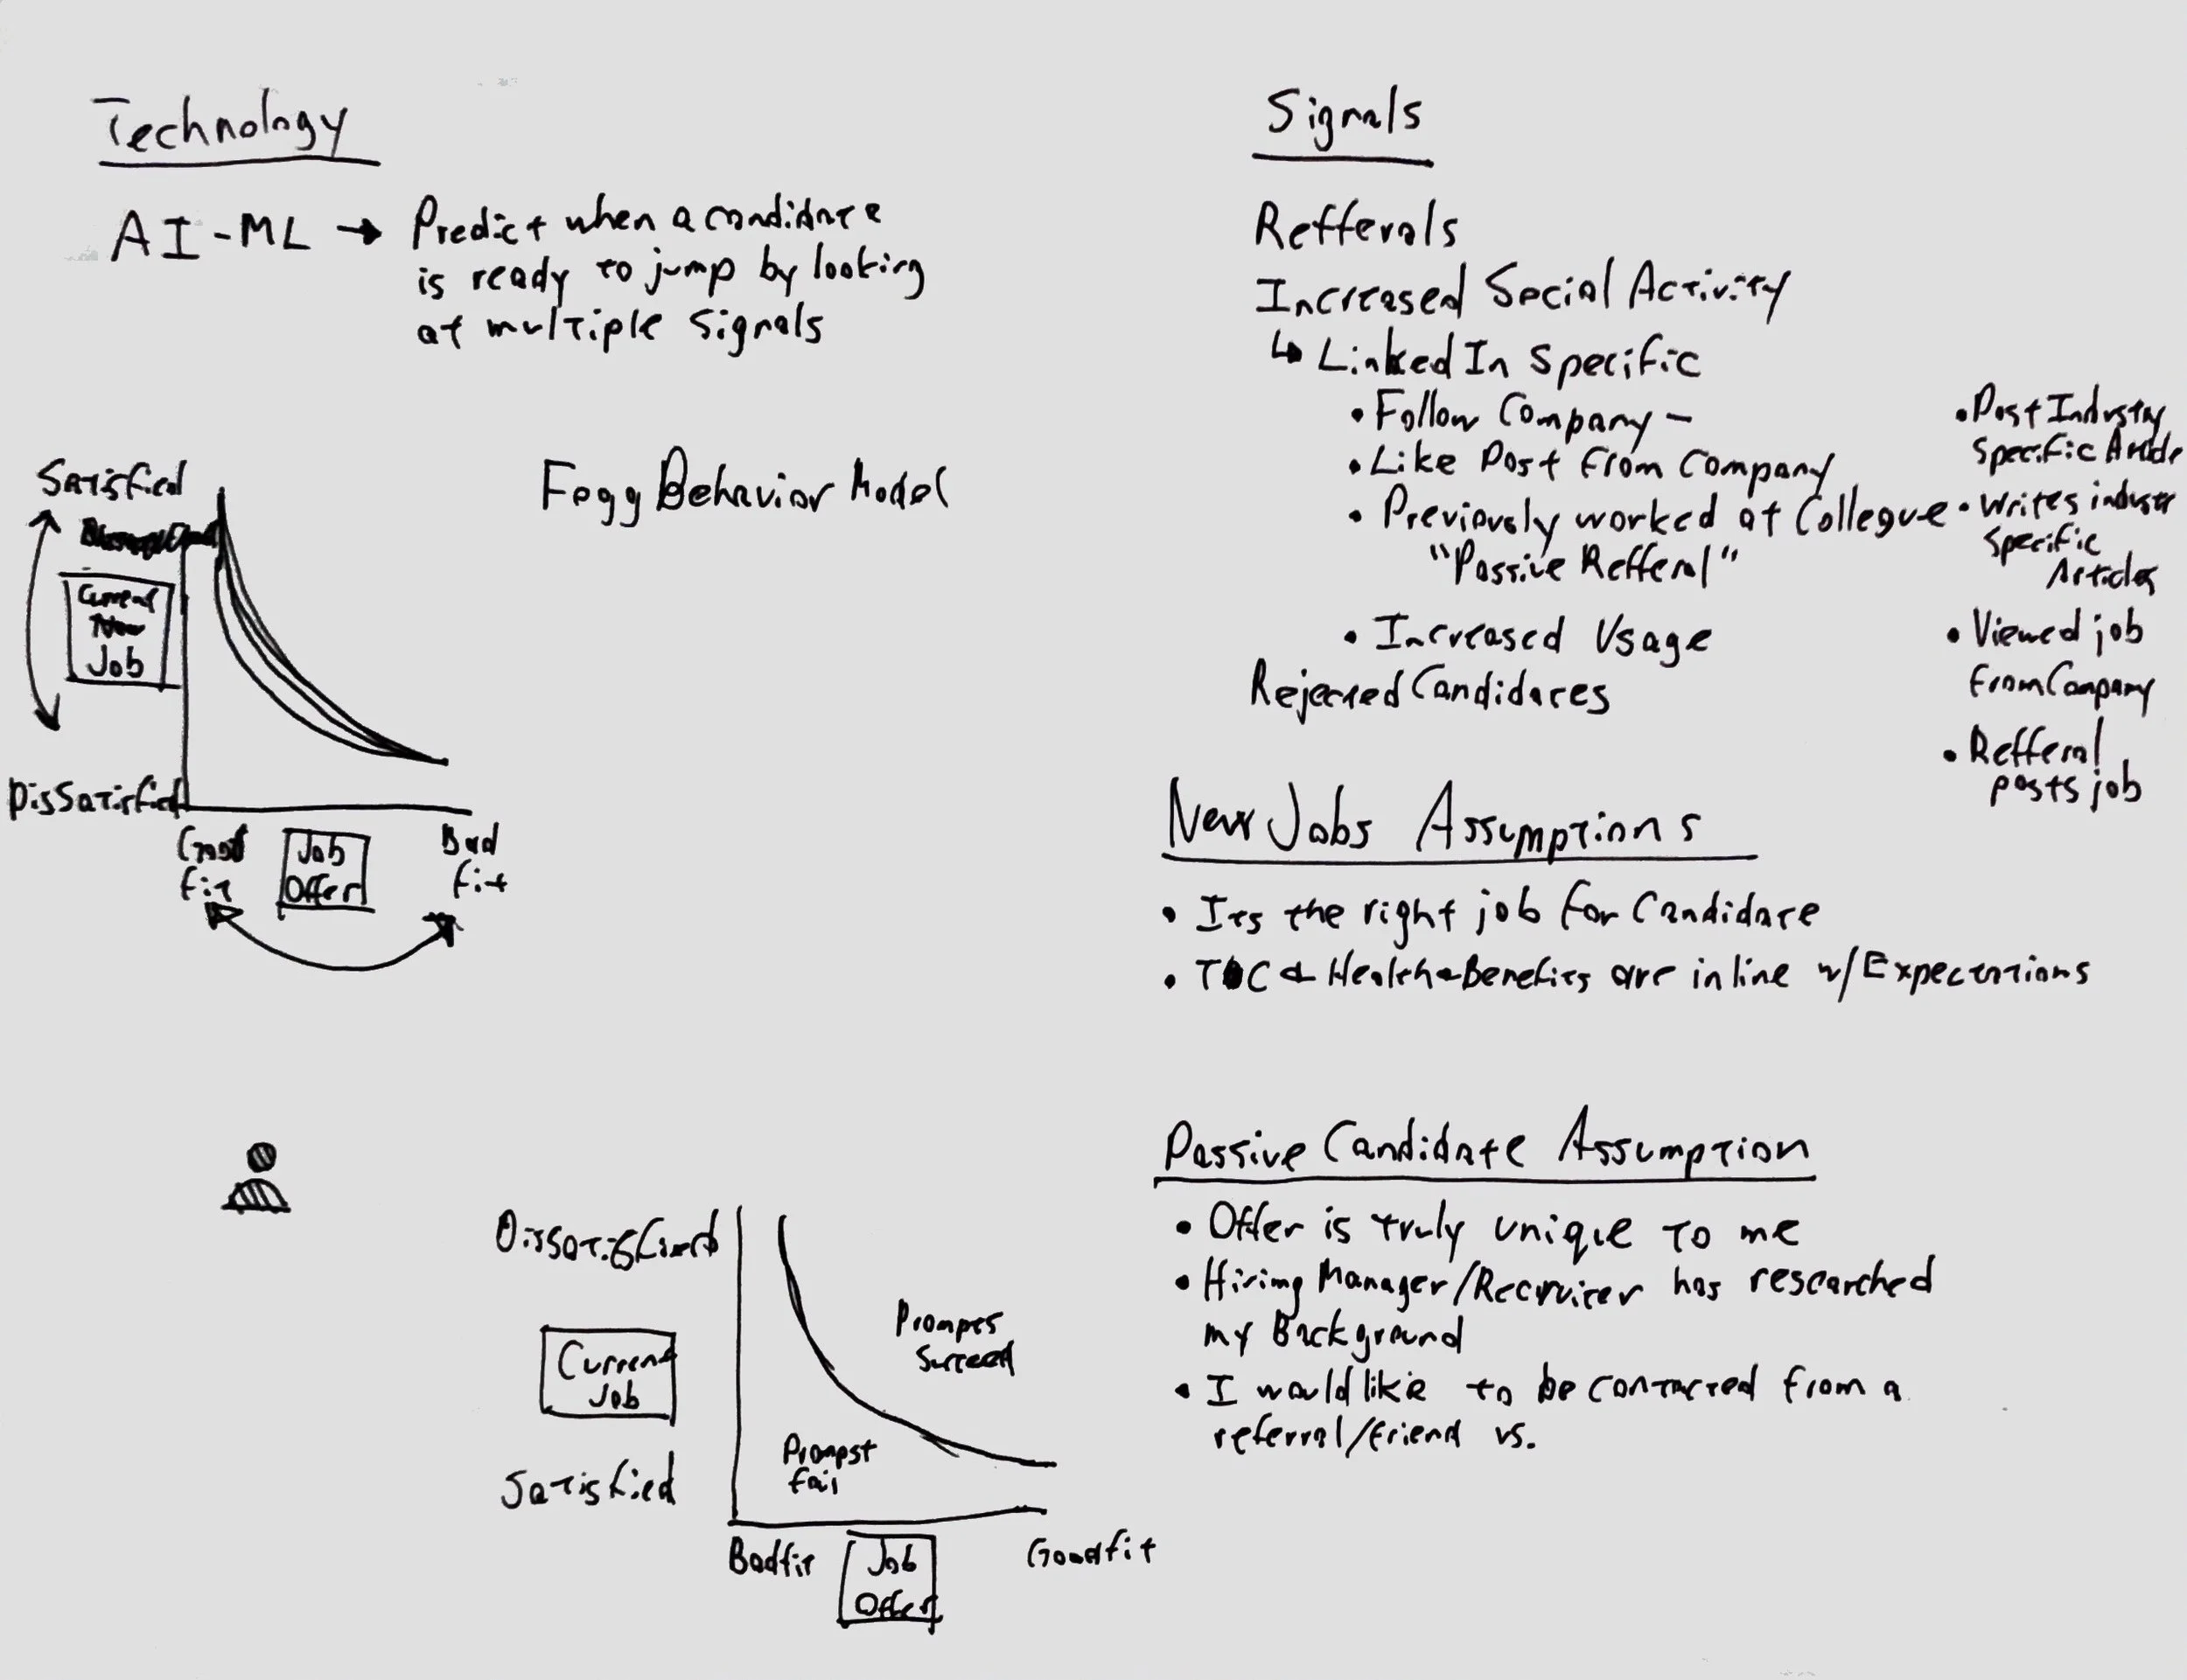 Technology
AI-ML → Predict when a candidate
is ready to jump by looking
at multiple signals
Fogg Behavior Model
Satisfied
Current
Job
Dissatisfied
Good
fit
Job
Offer
Bad
fit
Dissatisfied
Current
Job
Satisfied
Prompts
Succeed
Prompst
fail
Badfit
Job
Offer
Goodfit
Signals
Refferals
Increased Social Activity
↳ Linked In Specific
• Follow Company –
• Like Post from Company
• Previously worked at Collegue
"Passive Refferal"
• Increased Usage
Rejected Candidates
• Post Industry
Specific Article
• Writes industr
Specific
Articles
• Viewed job
from Company
• Refferal
posts job
New Jobs Assumptions
• Its the right job for Candidate
• & Health & Benefits are in line w/ Expectations
Passive Candidate Assumption
• Offer is truly unique to me
• Hiring Manager/Recruiter has researched
my Background
• I would like to be contacted from a
referral/friend vs.